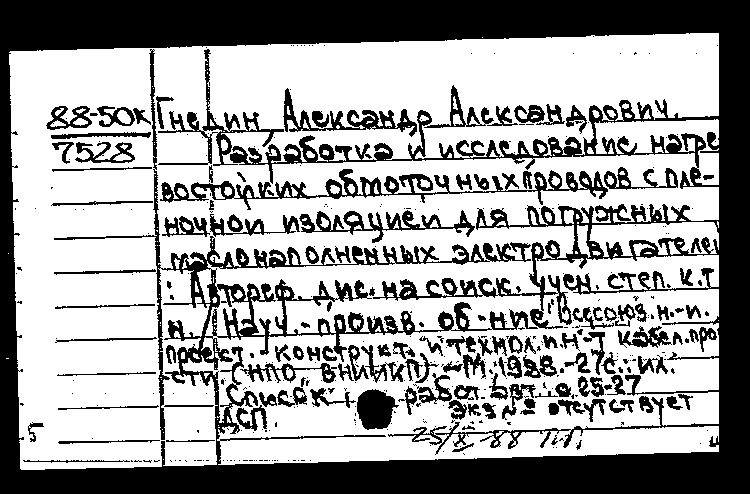 88-50к
7528
Гнедин Александр Александрович.
Разработка и исследование нагре
востойких обмоточных проводов с пле-
ночной изоляцией для погружных
маслонаполненных электродвигателей
: Автореф. дис. на соиск. учен. степ. к.т
н. Науч.-произв. об-ние "Всесоюз. н.-и.
проект.-конструкт. и технол. ин-т кабел. про
-сти (НПО "ВНИИКП). - М., 1988. - 27с.: ил.
Список работ авт. с. 25-27
ДСП. Экз № отсутствует
5 25/X-88